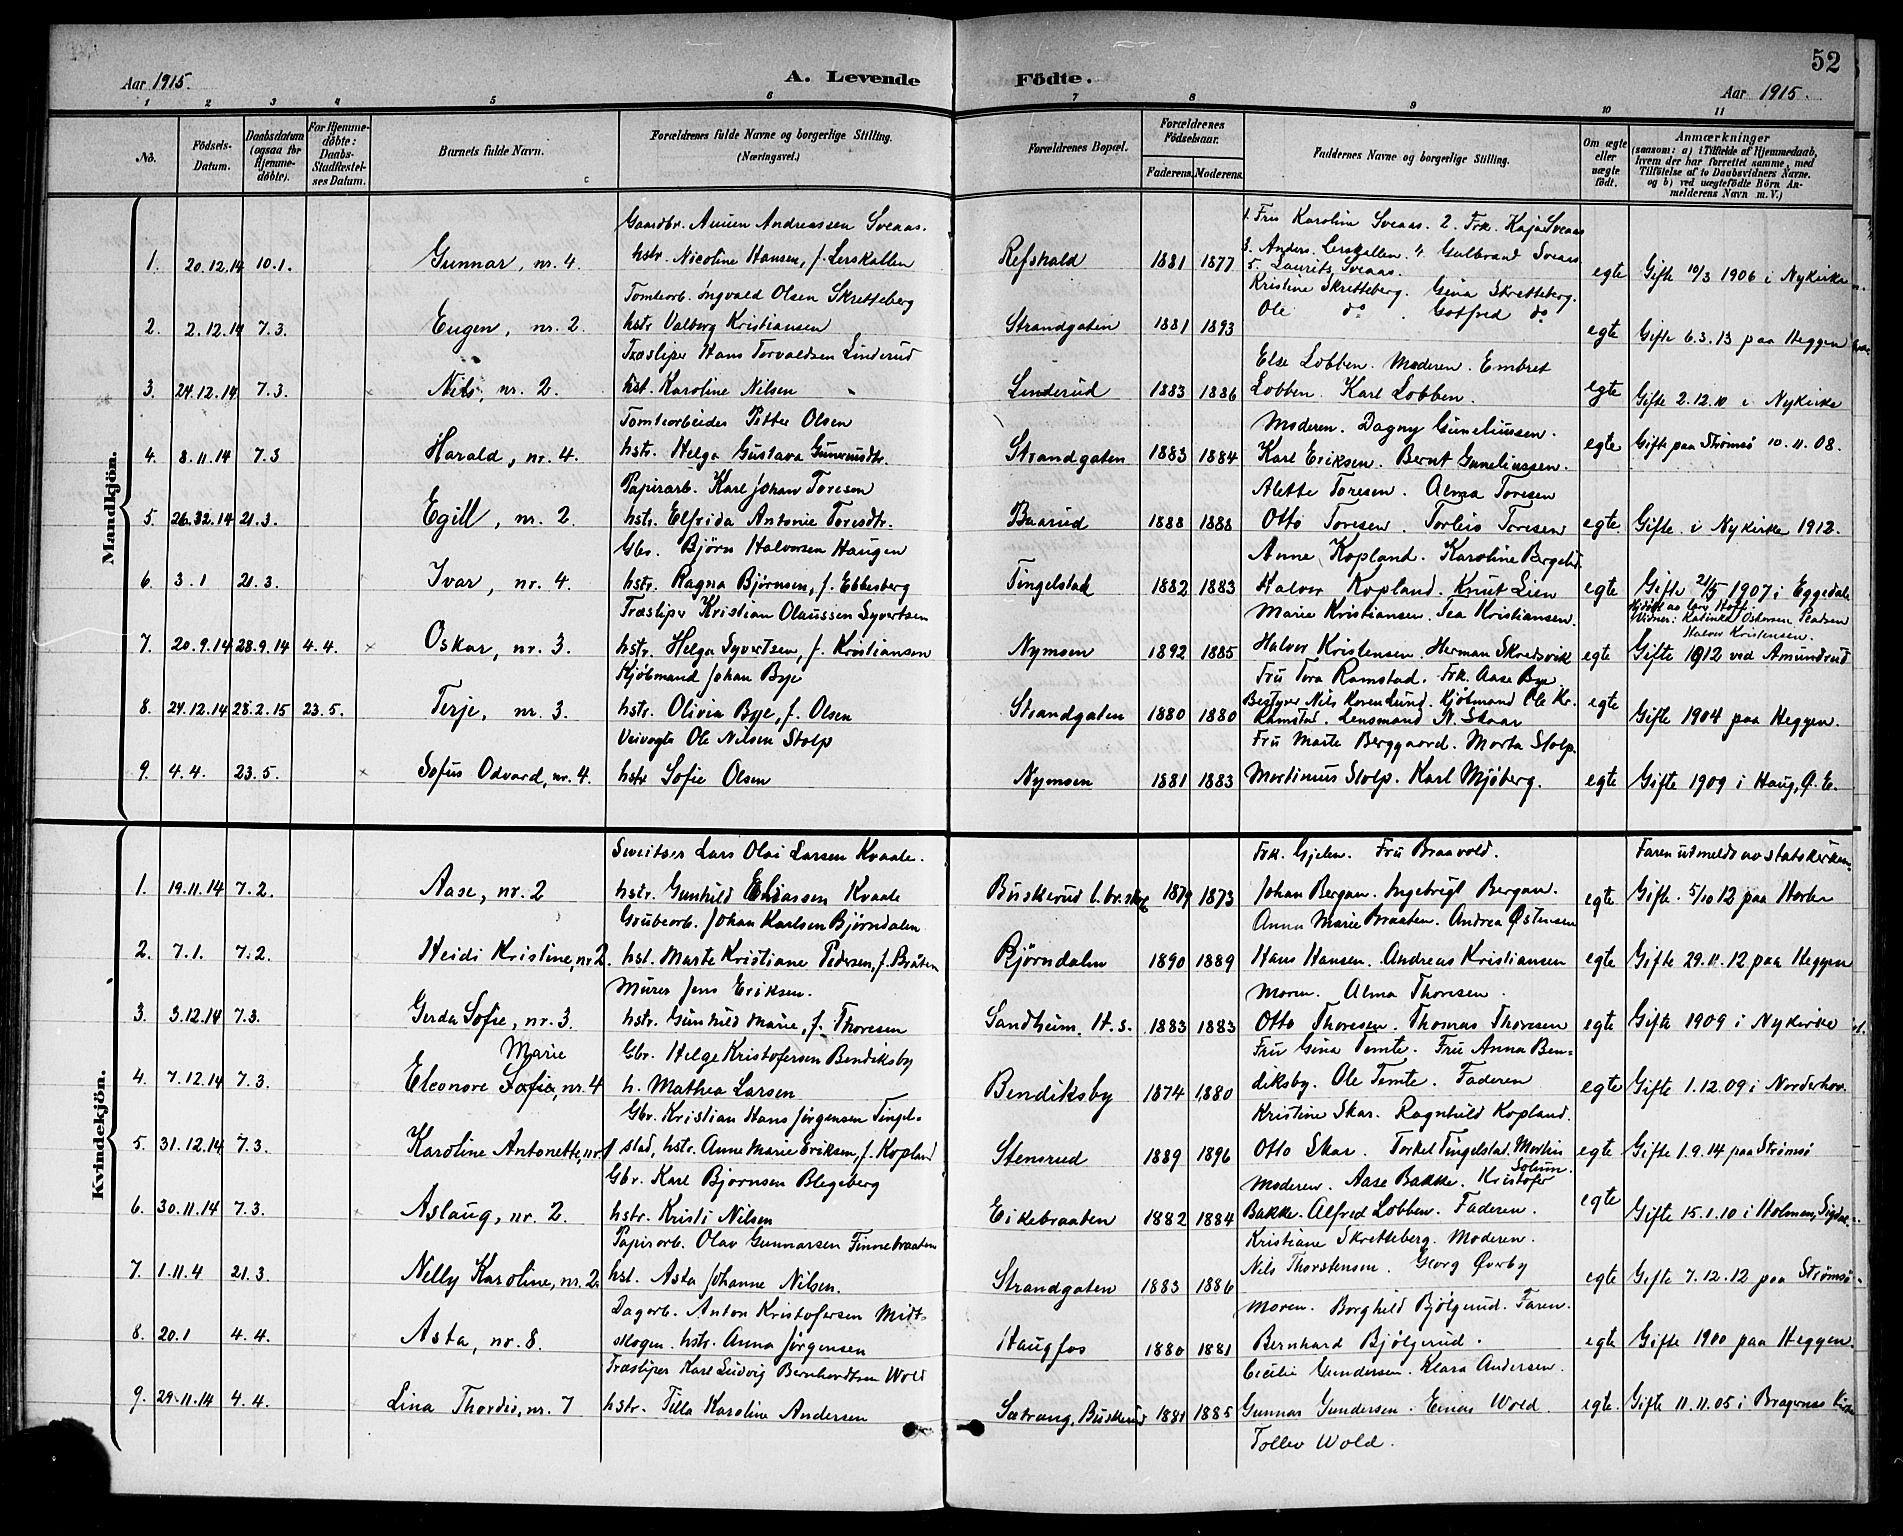 52
Aar 1915.
A. Levende Födte.
Aar 1915.
1 2 3 4 5 6 7 8 9 10 11
No.
Födsels-Datum.
Daabsdatum (ogsaa for Hjemmedöbte).
For Hjemmedöbte: Daabs-Stadfæstelses Datum.
Barnets fulde Navn.
Forældrenes fulde Navne og borgerlige Stilling. (Næringsvei.)
Forældrenes Bopæl.
Forældrenes Födselsaar.
Faderens. Moderens.
Faddernes Navne og borgerlige Stilling.
Om ægte eller uægte födt.
Anmærkninger
(saasom: a) i Tilfælde af Hjemmedaab, hvem der har forrettet samme, med Tilföielse af to Daabsvidners Navne. og b) ved uægtefödte Börn Anmelderens Navn m. V.)
Mandkjön.
Gaardbr. Amien Andreassen Sveaas.
1. Fru Karoline Sveaas. 2. Frk. Kaja Sveaas
1. 20.12.14 10.1. Gunnar, nr. 4. hstr. Nicoline Hansen, f. Lerskallen Refshald 1881 1877 3. Anders Lerskallen. 4 Gulbrand Sveaas 5. Laurits Sveaas. egte Gifte 10/3 1906 i Nykirke
Tomteorb. Ingvald Olsen Skretteberg Kristine Skretteberg. Gina Skretteberg.
2. 2.12.14 7.3. Eugen, nr. 2. hstr Valborg Kristiansen Strandgaten 1881 1893 Ole do . Gotfred do egte Gifte 6.3.13 paa Heggen
Træsliper Hans Torvaldsen Linderud Else Lobben. Moderen. Embret
3. 24.12.14 7.3. Nils, nr. 2. hst. Karoline Nilsen Linderud 1883 1886 Lobben. Karl Lobben. egte Gifte 2.12.10 i Nykirke
Tomteorbeider Petter Olsen Moderen. Dagny Guneliussen.
4. 8.11.14 7.3 Harald, nr. 4. hstr. Helga Gustava Gunvaldtr. Strandgaten 1883 1884 Karl Eriksen. Bernt Guneliussen. egte Gifte paa Strømsø 10.11.08.
Papirarb. Karl Johan Toresen Alette Toresen. Alma Toresen
5. 26.32.14 21.3. Egill, nr. 2. hstr. Elfrida Antonie Toresdtr. Baarud 1888 1888 Otto Toresen. Torleio Toresen egte. Gifte. i Nykirke 1912.
Gbr. Bjørn Halvorsen Haugen Anne Kopland. Karoline Bergelid.
6. 3.1 21.3. Ivar, nr. 4. hstr. Ragna Bjørnsen, f. Ebbesberg Tingelstad 1882 1883 Halvor Kopland. Knut Lien egte Gifte 21/5 1907 i Eggedale
Træsliper Kristian Olaussen Syvertsen Marie Kristiansen. Tea Kristiansen. Hjdøbt av Lars Hoff. Vidner: Katinka Ostensen Pladsen Halvor Kristensen.
7. 20.9.14 28.9.14 4.4. Oskar, nr. 3. hstr. Helga Syvertsen, f. Kristiansen Nymoen 1892 1885 Halvor Kristensen. Herman Skredsvik egte Gifte 1912 ved Amundrud
Kjøbmand Johan Bye Fru Tora Ramstad. Frk. Aase Bye
8. 24.12.14 28.2.15 23.5. Terje, nr. 3. hstr. Olivia Bye, f. Olsen Strandgaten 1880 1880 Bestyrer Nils Korenlund. Kjøbmand Ole Kr. Ramstad. Lensmand N. Skaar egte Gifte 1904 paa Heggen.
Veivogte Ole Nilsen Stolp Fru Marte Berggaard. Marta Stolp.
9. 4.4. 23.5. Sofus Odvard, nr. 4. hstr Sofie Olsen Nymoen 1881 1883 Martinius Stolp. Karl Mjøberg. egte Gifte 1909 i Haug, Ø.E.
Kvindekjön.
Sveitser Lars Olai Larsen Kvaale. Frk. Gjelen. Fru Braavold. Faren utmeldt av statskirken
1. 19.11.14 7.2. Aase, nr. 2 hstr. Gunhild Eliassen Kvaale Buskerud l.br.skole 1879 1873 Johan Bergan. Ingebrigt Bergan. egte Gifte. 5/10 12 paa Horten
Grubeorb. Johan Karlsen Bjørndalen Anna Marie Braaten. Andrea Østensen
2. 7.1. 7.2. Heidi Kristine, nr 2. hst. Marte Kristiane Pedersen, f. Bråten Bjørndalen 1890 1889 Hans Hansen. Andreas Kristiansen egte Gifte 29.11.12 paa Heggen
Murer Jens Eriksen. Moren. Alma Thoresen.
3. 3.12.14 7.3. Gerda Sofie, nr. 3. hstr. Gunhild Marie, f. Thoresen Sandheim, H.s. 1883 1883 Otto Thoresen. Thomas Thoresen egte Gifte 1909 i Nykirke
Marie Gbr. Helge Kristofersen Bendiksby Fru Gina Temte. Fru Anna Ben-
4. 7.12.14 7.3. Eleonore Sofie, nr. 4 h. Mathea Larsen Bendiksby 1874 1880 diksby. Ole Temte. Faderen egte Gifte 1.12.09 i Norderhov.
Gbr. Kristian Hans Jørgensen Tingel- Kristine Skar. Ragnhild Kopland.
5. 31.12.14 7.3. Karoline Antonette, nr. 1 stad, hstr. Anne Marie Eriksen, f. Kopland Stensrud 1889 1896 Otto Skar. Torkel Tingelstad. Martin Solum. egte Gifte 1.9.14 paa Strømsø
Gbr. Karl Bjørnsen Blegeberg Moderen. Aase Bakke. Kristofer
6. 30.11.14 7.3. Aslaug, nr. 2. hstr. Kristi Nilsen Eikebraaten 1882 1884 Bakke. Alfred Lobben. Faderen. egte Gifte 15.1.10 i Holmen, Sigdal
Papirorb. Olav Gunnarsen Finnebraaten Kristiane Skretteberg. Moderen.
7. 1.11.4 21.3. Nelly Karoline, nr. 2. hst. Asta Johanne Nilsen. Strandgaten 1883 1886 Nils Thorstensen. Georg Øverby egte Gifte 7.12.12 paa Strømsø
Dagorb. Anton Kristofersen Midt- Moren. Borghild Bjølgerud. Faren.
8. 20.1 4.4. Asta, nr. 8. skogen. hstr. Anna Jørgensen Haugfos 1880 1881 Bernhard Bjølgerud. egte Gifte 1900 paa Heggen.
Træsliper Karl Ludvig Bernhardtsen Wold Cecilie Gundersen. Klara Andersen.
9. 29.11.14 4.4. Lina Thordis, nr. 7 hstr. Tilla Karoline Andersen Sætrang, Buskerud 1881 1885 Gunnar Gundersen. Einar Wold. egte. Gifte 11.11.05 i Bragernes Kirke
Tollev Wold.